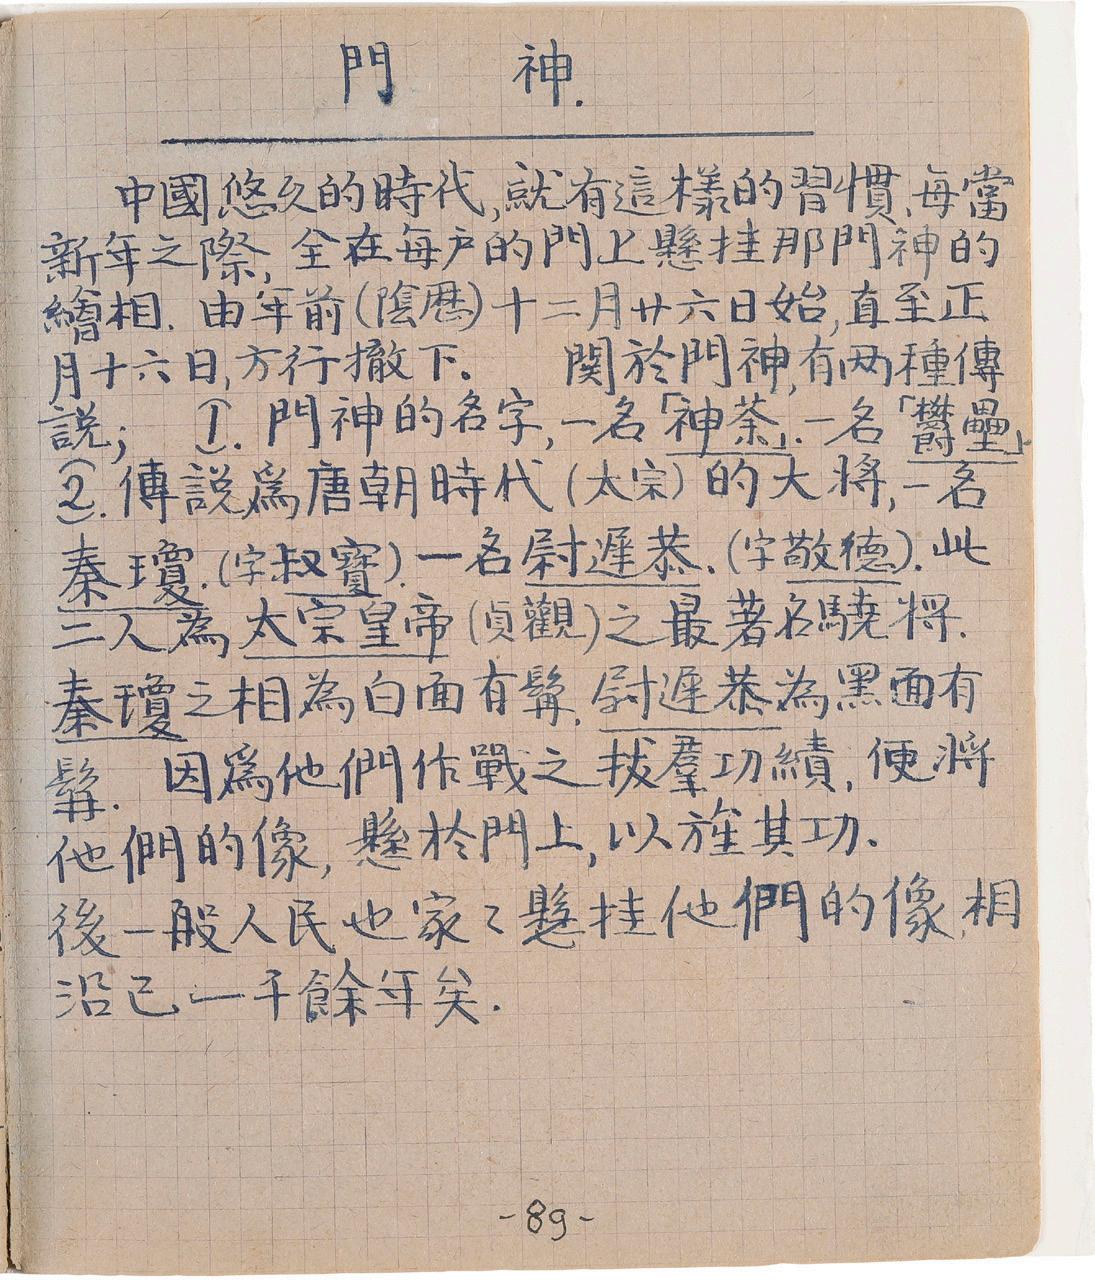 門　神.
中國悠久的時代,就有這樣的習慣,每當
新年之際,全在每戶的門上懸挂那門神的
繪相.由年前(陰曆)十二月廿六日始,直至正
月十六日,方行撤下。　関於門神,有两種傳
說;　⑴.門神的名字,一名「神荼」.一名「欝壘」
⑵.傳說爲唐朝時代(太宗)的大將,一名
秦瓊.(字叔寶).一名尉遲恭.(字敬德).此
二人為太宗皇帝(貞觀)之最著名驍将.
秦瓊之相為白面有髯,尉遲恭為黑面有
髯.　因爲他們作戰之拔羣功績,便將
他們的像,懸於門上,以旌其功.
後一般人民也家〻懸挂他們的像,相
沿已一千餘年矣.
-89-